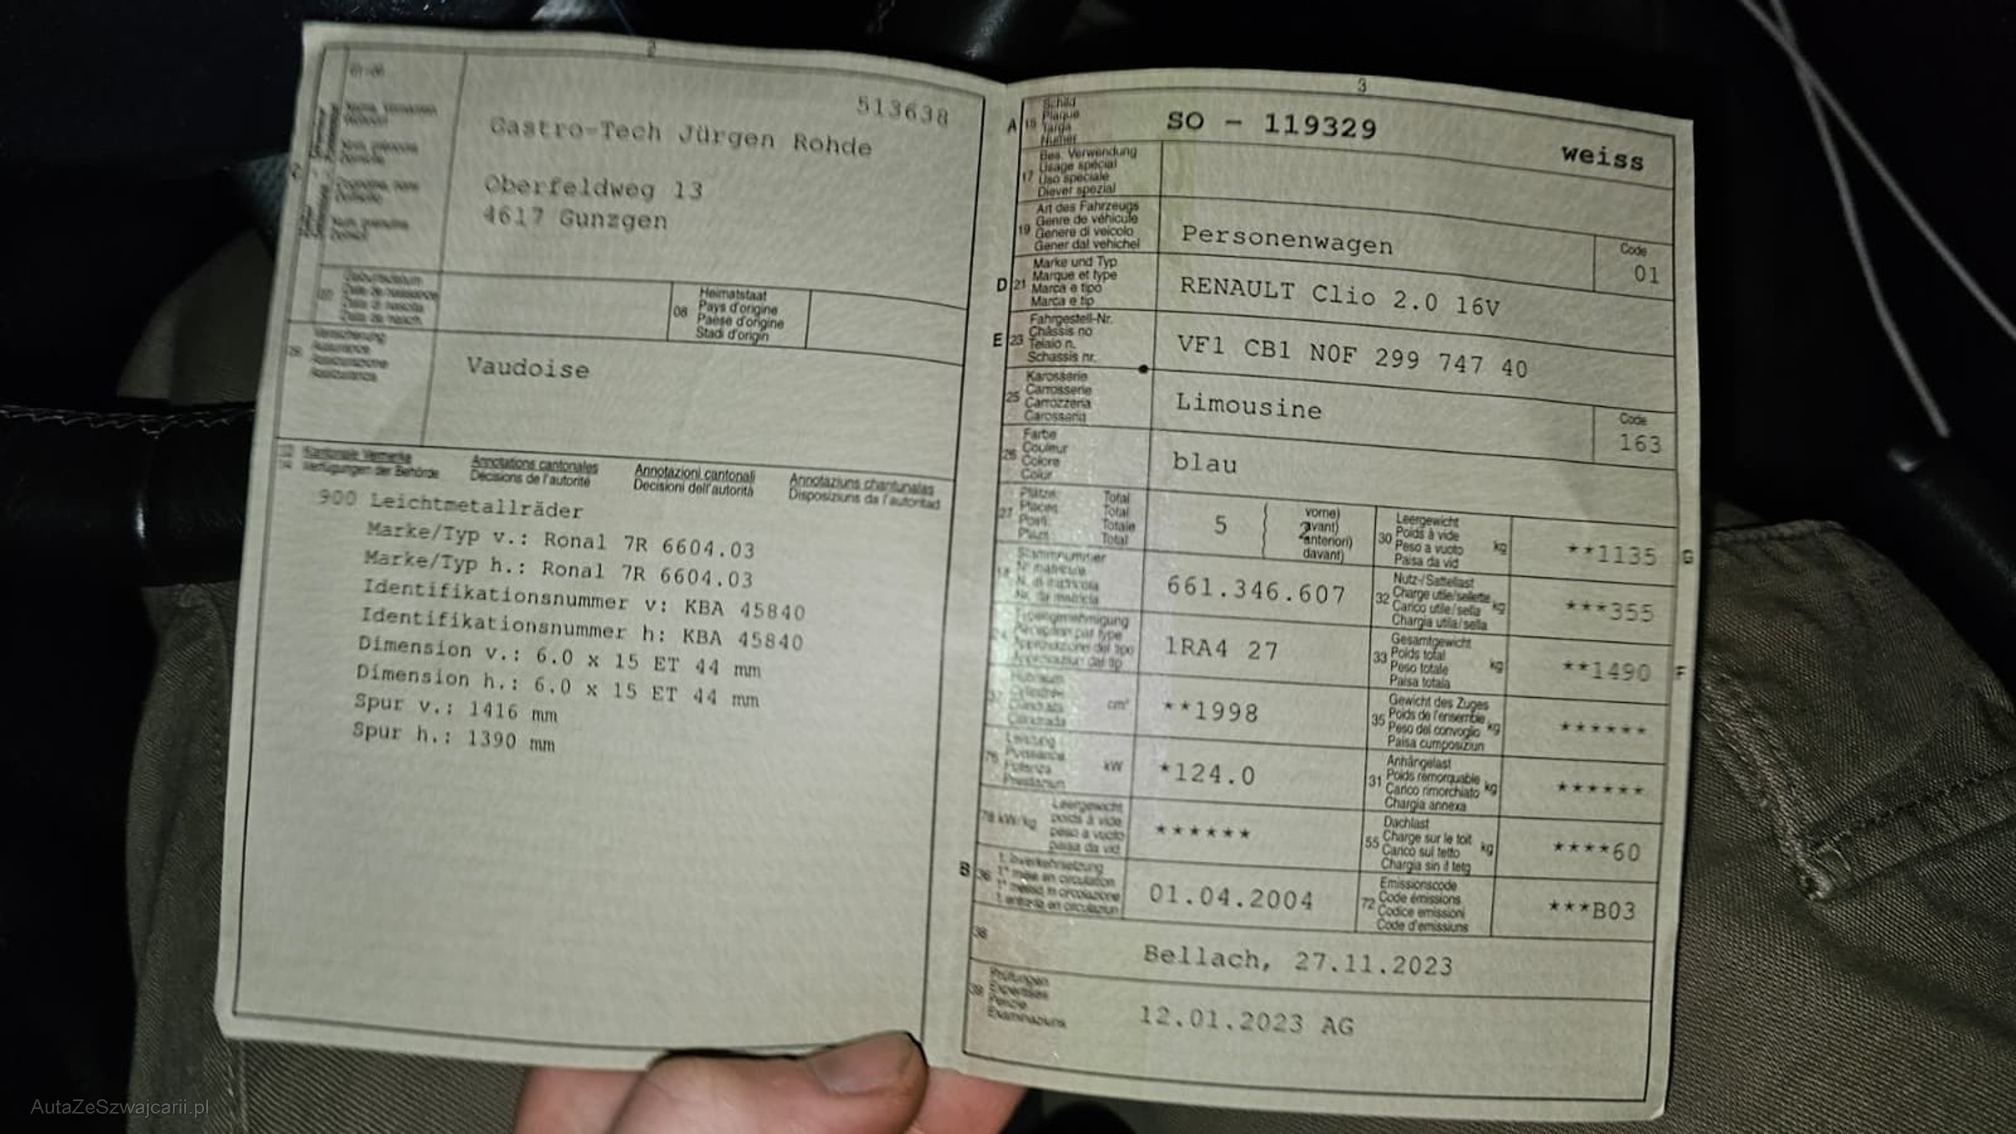 2
513638
Gastro-Tech Jürgen Rohde
Oberfeldweg 13
4617 Gunzgen
08
Heimatstaat
Pays d'origine
Paese d'origine
Stadi d'origin
Vaudoise
Kantonale Vermerke Annotations cantonales Annotazioni cantonali Annotaziuns chantunalas
14 Verfügungen der Behörde Décisions de l'autorité Decisioni dell'autorità Disposiziuns da l'autoritad
900 Leichtmetallräder
Marke/Typ v.: Ronal 7R 6604.03
Marke/Typ h.: Ronal 7R 6604.03
Identifikationsnummer v: KBA 45840
Identifikationsnummer h: KBA 45840
Dimension v.: 6.0 x 15 ET 44 mm
Dimension h.: 6.0 x 15 ET 44 mm
Spur v.: 1416 mm
Spur h.: 1390 mm
3
A 15
Schild
Plaque
Targa
Numer
SO - 119329 weiss
17
Bes. Verwendung
Usage spécial
Uso speciale
Diever spezial
19
Art des Fahrzeugs
Genre de véhicule
Genere di veicolo
Gener dal vehichel
Personenwagen
Code
01
D 21
Marke und Typ
Marque et type
Marca e tipo
Marca e tip
RENAULT Clio 2.0 16V
E 23
Fahrgestell-Nr.
Châssis no
Telaio n.
Schassis nr.
VF1 CB1 N0F 299 747 40
25
Karosserie
Carrosserie
Carrozzeria
Carossaria
Limousine
Code
163
26
Farbe
Couleur
Colore
Colur
blau
27
Plätze Total
Places Total
Posti Totale
Total
5
vorne)
avant)
2
anteriori)
davant)
30
Leergewicht
Poids à vide
Peso a vuoto
Paisa da vid
kg
**1135 G
661.346.607
32
Nutz-/Sattellast
Charge utile/sellette
Carico utile/sella
Chargia utila/sella
kg
***355
1RA4 27
33
Gesamtgewicht
Poids total
Peso totale
Paisa totala
kg
**1490 F
cm³
**1998
35
Gewicht des Zuges
Poids de l'ensemble
Peso del convoglio
Paisa cumposiziun
kg
******
kW
*124.0
31
Anhängelast
Poids remorquable
Carico rimorchiato
Chargia annexa
kg
******
78 kW/kg
Leergewicht
poids à vide
peso a vuoto
paisa da vid
******
55
Dachlast
Charge sur le toit
Carico sul tetto
Chargia sin il tetg
kg
****60
B 36
1. Inverkehrsetzung
1ʳᵉ mise en circulation
01.04.2004
72
Emissionscode
Code émissions
Codice emissioni
Code d'emissiuns
***B03
38
Bellach, 27.11.2023
39
Prüfungen
Expertises
12.01.2023 AG
AutaZeSzwajcarii.pl